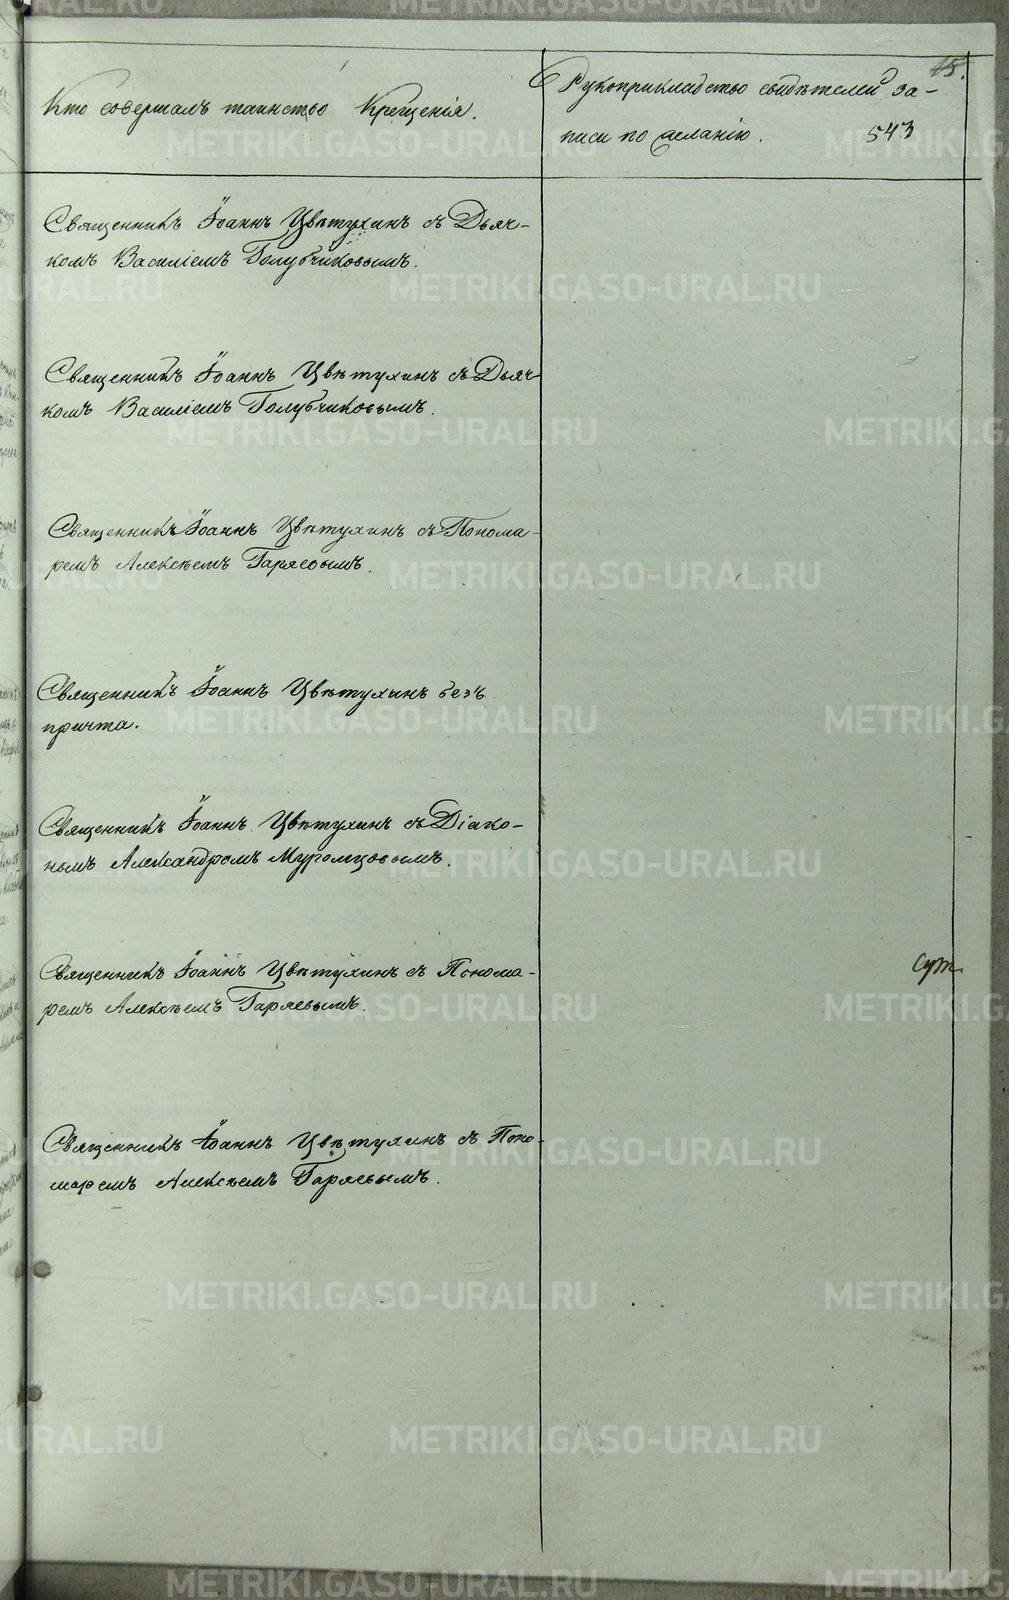 45.
Кто совершалъ таинство Крещенія.
Рукоприкладство свидѣтелей за-
писи по желанію.
543
Священникъ Іоаннъ Цвѣтухинъ съ Дьяч-
комъ Василіемъ Голубчиковымъ.
Священникъ Іоаннъ Цвѣтухинъ съ Дьяч-
комъ Василіемъ Голубчиковымъ.
Священникъ Іоаннъ Цвѣтухинъ съ Понома-
ремъ Алексѣемъ Гаряевымъ.
Священникъ Іоаннъ Цвѣтухинъ безъ
причта.
Священникъ Іоаннъ Цвѣтухинъ съ Діако-
номъ Александромъ Муромцовымъ.
Священникъ Іоаннъ Цвѣтухинъ съ Понома-
ремъ Алексѣемъ Гаряевымъ.
Священникъ Іоаннъ Цвѣтухинъ съ Поно-
маремъ Алексѣемъ Гаряевымъ.
METRIKI.GASO-URAL.RU